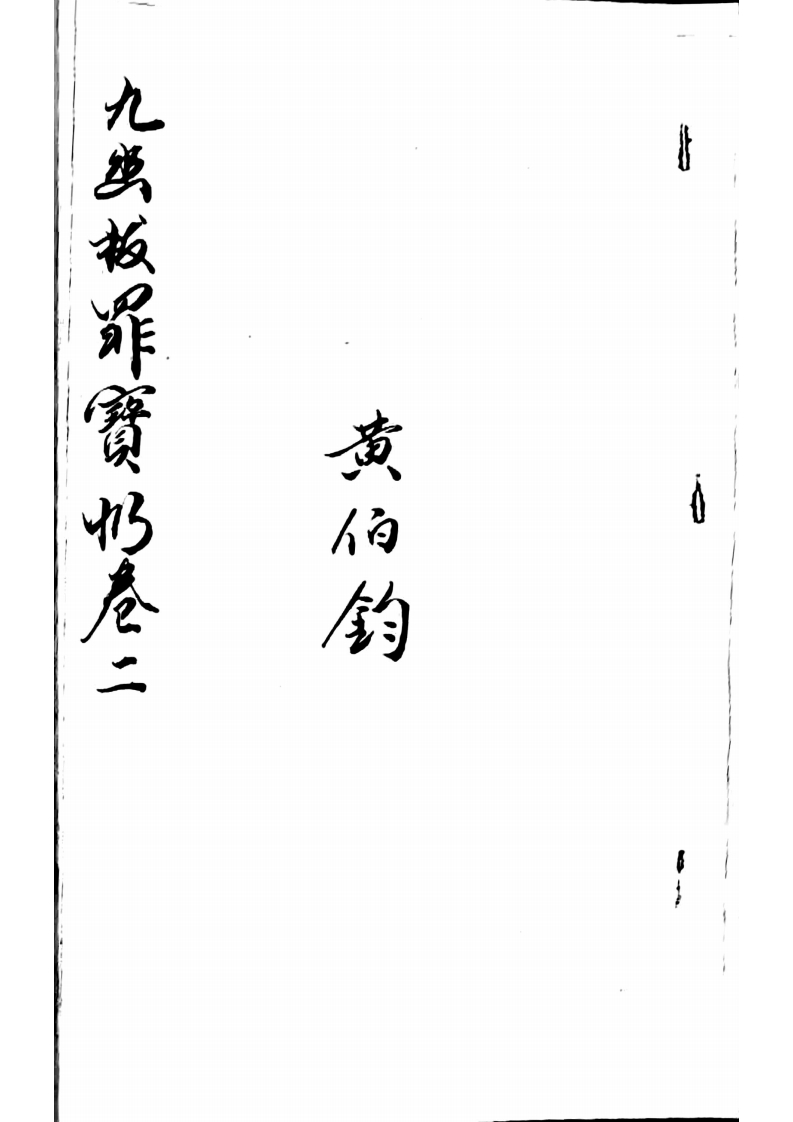 黄伯鈞
九幽拔罪寶忏卷二